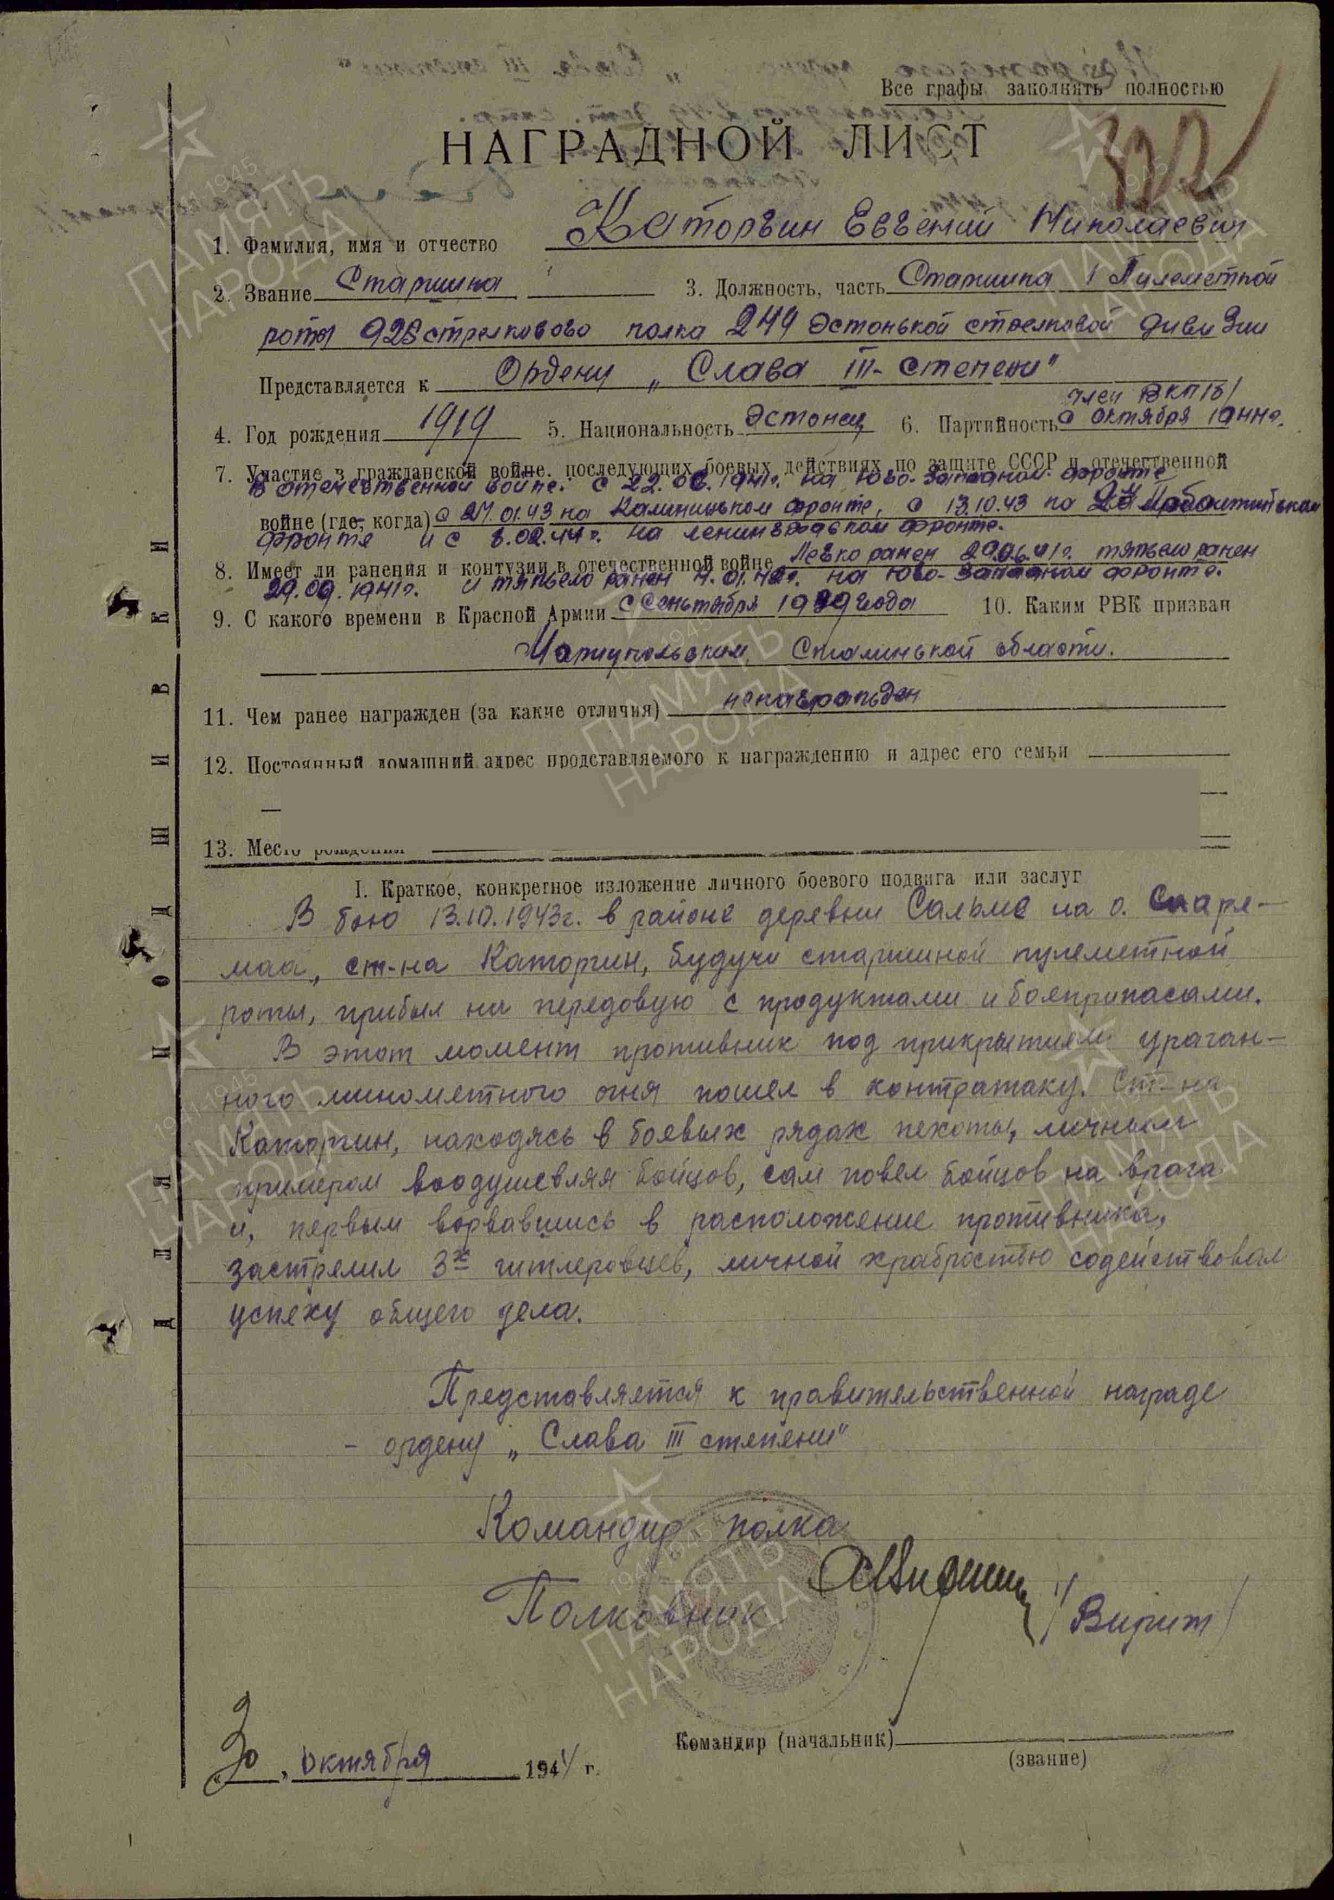 Все графы заполнять полностью
НАГРАДНОЙ ЛИСТ
1. Фамилия, имя и отчество Каторгин Евгений Николаевич
2. Звание Старшина 3. Должность, часть Старшина 1 Пулеметной
роты 925 стрелкового полка 249 Эстонской стрелковой дивизии
Представляется к Ордену „Слава III- степени"
член ВКП/б/
4. Год рождения 1919 5. Национальность Эстонец 6. Партийность с октября 1944г.
7. Участие в гражданской войне, последующих боевых действиях по защите СССР и отечественной
В отечественной войне: с 22.06.1941г. на Юго-Западном фронте
войне (где, когда) с 27.01.43 на Калининском фронте, с 13.10.43 на Прибалтийском
фронте и с 8.02.44г. на Ленинградском фронте.
8. Имеет ли ранения и контузии в отечественной войне Легко ранен 29.06.41г. тяжело ранен
29.09.1941г. и тяжело ранен 4.01.42г. на Юго-Западном фронте.
9. С какого времени в Красной Армии с Сентября 1939 года 10. Каким РВК призван
Мариупольским Сталинской области.
11. Чем ранее награжден (за какие отличия) ненагражден
12. Постоянный домашний адрес представляемого к награждению и адрес его семьи
13. Место рождения
I. Краткое, конкретное изложение личного боевого подвига или заслуг
В бою 13.10.1943г. в районе деревни Сальме на о. Сааре-
маа, ст-на Каторгин, будучи старшиной пулеметной
роты, прибыл на передовую с продуктами и боеприпасами.
В этот момент противник под прикрытием ураган-
ного минометного огня пошел в контратаку. Ст-на
Каторгин, находясь в боевых рядах пехоты, личным
примером воодушевляя бойцов, сам повел бойцов на врага
и, первым ворвавшись в расположение противника,
застрелил 3х гитлеровцев, личной храбростью содействовал
успеху общего дела.
Представляется к правительственной награде
- ордену „Слава III степени"
Командир полка
Полковник /Вырит/
Командир (начальник)
(звание)
30, октября 1944 г.
ДЛЯ ПОДШИВКИ
ПАМЯТЬ НАРОДА
1941-1945